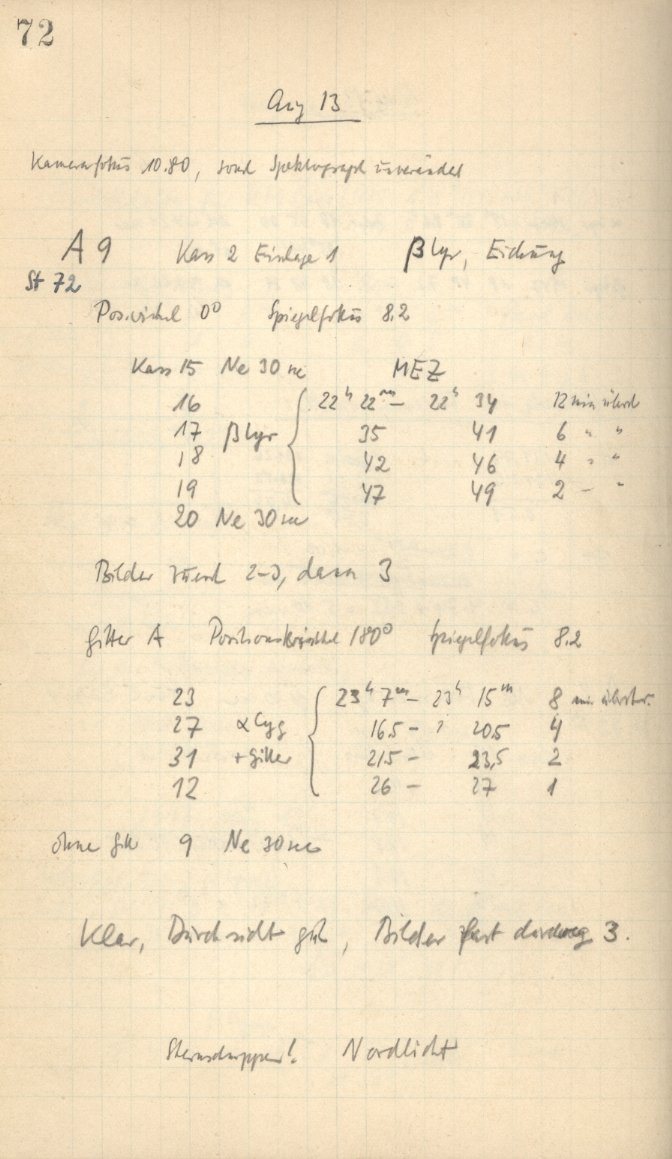 72
Aug 13
Kamerafokus 10.80, sonst Spektrograph unverändert
A 9 Kass 2 Einlage 1 β Lyr, Eichung
St 72
Pos.winkel 0° Spiegelfokus 8.2
Kass 15 Ne 30 sec MEZ
16 22ʰ 22ᵐ – 22ʰ 34 12 min überb
17 β Lyr 35 41 6 " "
18 42 46 4 " "
19 47 49 2 – "
20 Ne 30 sec
Bilder zuerst 2–3, dann 3
Gitter A Positionswinkel 180° Spiegelfokus 8.2
23 23ʰ 7ᵐ – 23ʰ 15ᵐ 8 min
27 α Cyg 16.5 – 20.5 4
31 + Gitter 21.5 – 23.5 2
12 26 – 27 1
ohne Gitt 9 Ne 30 sec
Klar, Durchsicht gut, Bilder fast durchweg 3.
Sternschnuppen! Nordlicht